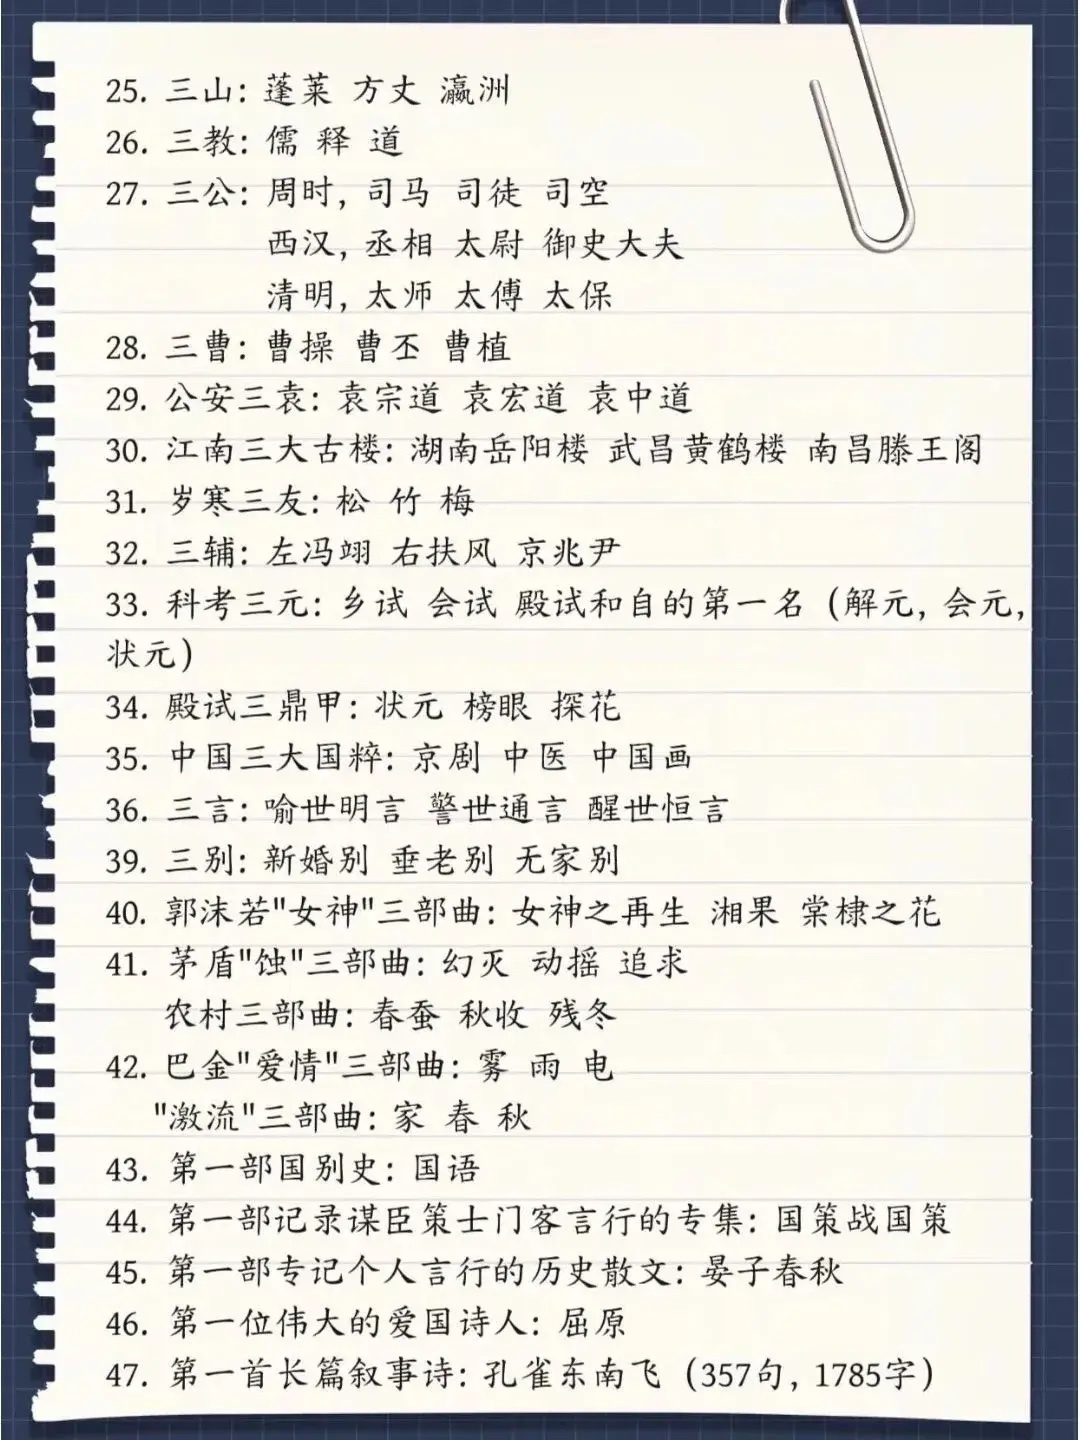 25. 三山: 蓬莱 方丈 瀛洲
26. 三教: 儒 释 道
27. 三公: 周时, 司马 司徒 司空
西汉, 丞相 太尉 御史大夫
清明, 太师 太傅 太保
28. 三曹: 曹操 曹丕 曹植
29. 公安三袁: 袁宗道 袁宏道 袁中道
30. 江南三大古楼: 湖南岳阳楼 武昌黄鹤楼 南昌滕王阁
31. 岁寒三友: 松 竹 梅
32. 三辅: 左冯翊 右扶风 京兆尹
33. 科考三元: 乡试 会试 殿试和自的第一名 (解元, 会元,
状元)
34. 殿试三鼎甲: 状元 榜眼 探花
35. 中国三大国粹: 京剧 中医 中国画
36. 三言: 喻世明言 警世通言 醒世恒言
39. 三别: 新婚别 垂老别 无家别
40. 郭沫若"女神"三部曲: 女神之再生 湘果 棠棣之花
41. 茅盾"蚀"三部曲: 幻灭 动摇 追求
农村三部曲: 春蚕 秋收 残冬
42. 巴金"爱情"三部曲: 雾 雨 电
"激流"三部曲: 家 春 秋
43. 第一部国别史: 国语
44. 第一部记录谋臣策士门客言行的专集: 国策战国策
45. 第一部专记个人言行的历史散文: 晏子春秋
46. 第一位伟大的爱国诗人: 屈原
47. 第一首长篇叙事诗: 孔雀东南飞 (357句, 1785字)